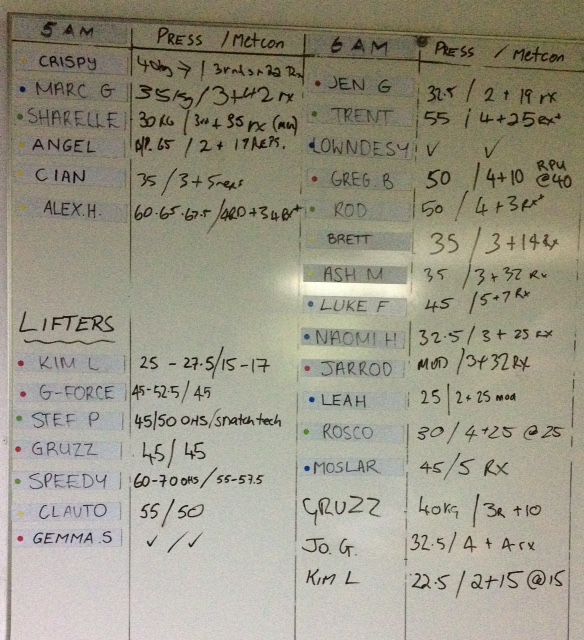 5 AM PRESS / Metcon
CRISPY 40kg → / 3rnds+22 Rx
MARC G 35kg / 3+42 rx
SHARELLE 30KG / 3rd + 35 rx
ANGEL 65 / 2 + 17 REPS.
CIAN 35 / 3 + 5 reps
ALEX.H. 60.65.67.5 / 4RD + 34
LIFTERS
KIM L 25 - 27.5/15-17
G-FORCE 45-52.5/ 45
STEF P 45/50 OHS/snatch tech
GRUZZ 45/ 45
SPEEDY 60-70 OHS / 55-57.5
CLAUTO 55 / 50
GEMMA.S ✓ / ✓
6 AM PRESS / Metcon
JEN G 32.5 / 2 + 19 rx
TRENT 55 / 4+25 rx+
LOWNDESY ✓ ✓
GREG B 50 / 4+10 RPU @40
ROD 50 / 4 + 3 Rx+
BRETT 35 / 3+14 Rx
ASH M 35 / 3 + 32 Rx
LUKE F 45 / 5+7 Rx
NAOMI H 32.5 / 3 + 25 Rx
JARROD MOD / 3+32 RX
LEAH 25 | 2+25 mod
ROSCO 30 / 4+25 @ 25
MOSLAR 45/5 RX
GRUZZ 40KG / 3R +10
JO. G. 32.5 / 4 + 4 rx
KIM L 22.5 / 2+15 @15